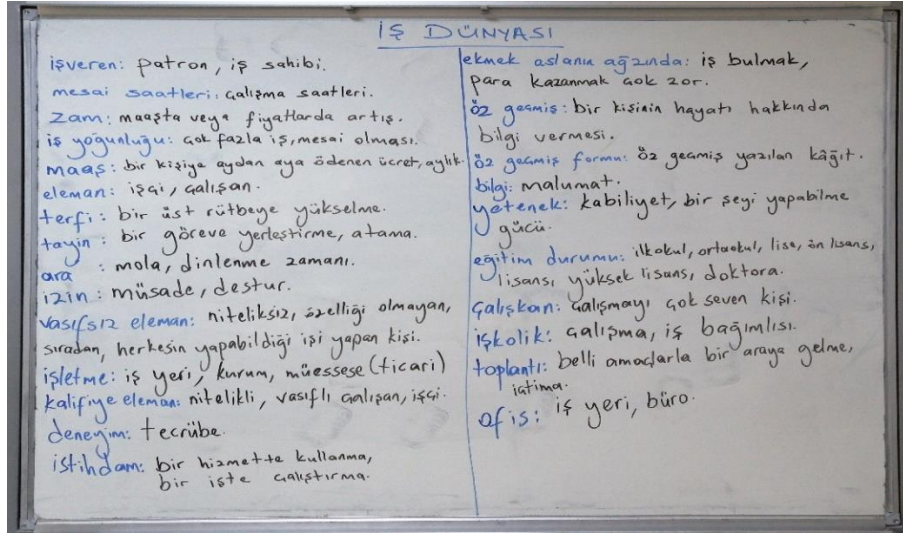 İŞ DÜNYASI
işveren: patron, iş sahibi.
mesai saatleri: çalışma saatleri.
zam: maaşta veya fiyatlarda artış.
iş yoğunluğu: çok fazla iş, mesai olması.
maaş: bir kişiye aydan aya ödenen ücret, aylık.
eleman: işçi, çalışan.
terfi: bir üst rütbeye yükselme.
tayin: bir göreve yerleştirme, atama.
ara: mola, dinlenme zamanı.
izin: müsade, destur.
vasıfsız eleman: niteliksiz, özelliği olmayan,
sıradan, herkesin yapabildiği işi yapan kişi.
işletme: iş yeri, kurum, müessese (ticari)
kalifiye eleman: nitelikli, vasıflı çalışan, işçi.
deneyim: tecrübe.
istihdam: bir hizmette kullanma,
bir işte çalıştırma.
ekmek aslanın ağzında: iş bulmak,
para kazanmak çok zor.
öz geçmiş: bir kişinin hayatı hakkında
bilgi vermesi.
öz geçmiş formu: öz geçmiş yazılan kâğıt.
bilgi: malumat.
yetenek: kabiliyet, bir şeyi yapabilme
gücü.
eğitim durumu: ilkokul, ortaokul, lise, ön lisans,
lisans, yüksek lisans, doktora.
çalışkan: çalışmayı çok seven kişi.
işkolik: çalışma, iş bağımlısı.
toplantı: belli amaçlarla bir araya gelme,
içtima.
ofis: iş yeri, büro.